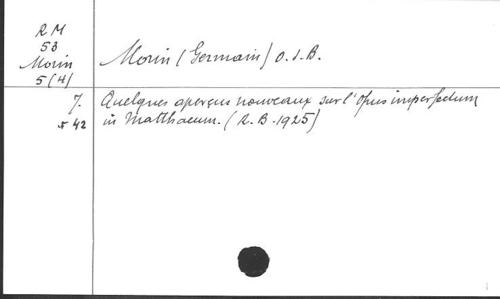 R M
53
Morin
5(4)
Morin (Germain) O.S.B.
7. Quelques aperçus nouveaux sur l'Opus imperfectum
+ 42 in Matthaeum. (R.B. 1925)